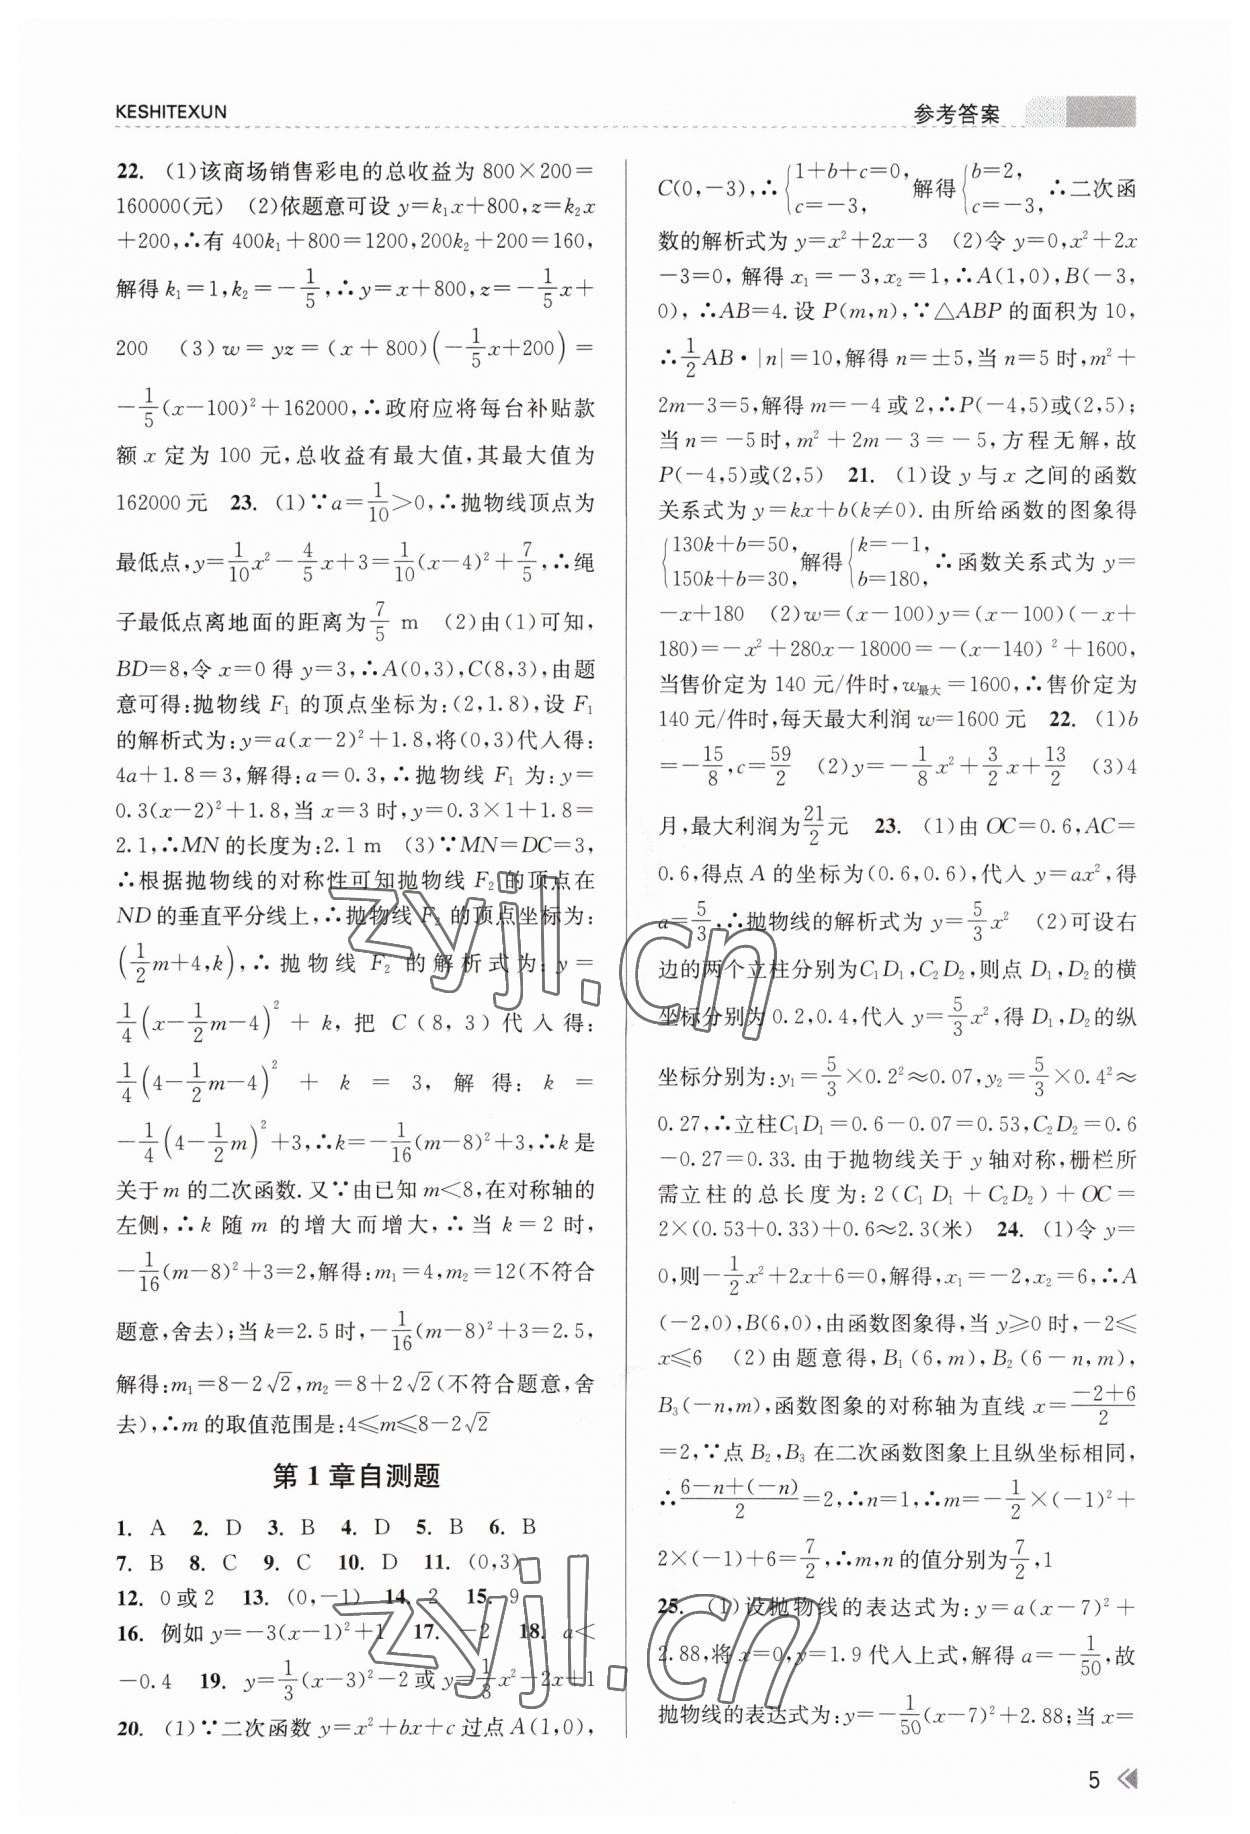 KESHITEXUN
参考答案
22. (1)该商场销售彩电的总收益为 800×200=
160000(元) (2)依题意可设 y=k₁x+800,z=k₂x
+200,∴有 400k₁+800=1200,200k₂+200=160,
解得 k₁=1,k₂=-1/5,∴y=x+800,z=-1/5x+
200 (3)w=yz=(x+800)(-1/5x+200)=
-1/5(x-100)²+162000,∴政府应将每台补贴款
额 x 定为 100 元,总收益有最大值,其最大值为
162000 元 23. (1)∵a=1/10>0,∴抛物线顶点为
最低点,y=1/10x²-4/5x+3=1/10(x-4)²+7/5,∴绳
子最低点离地面的距离为7/5 m (2)由(1)可知,
BD=8,令 x=0 得 y=3,∴A(0,3),C(8,3),由题
意可得:抛物线 F₁ 的顶点坐标为:(2,1.8),设 F₁
的解析式为:y=a(x-2)²+1.8,将(0,3)代入得:
4a+1.8=3,解得:a=0.3,∴抛物线 F₁ 为:y=
0.3(x-2)²+1.8,当 x=3 时,y=0.3×1+1.8=
2.1,∴MN 的长度为:2.1 m (3)∵MN=DC=3,
∴根据抛物线的对称性可知抛物线 F₂ 的顶点在
ND 的垂直平分线上,∴抛物线 F₂ 的顶点坐标为:
(1/2m+4,k),∴抛物线 F₂ 的解析式为:y=
1/4(x-1/2m-4)²+k,把 C(8,3)代入得:
1/4(4-1/2m-4)²+k=3,解得:k=
-1/4(4-1/2m)²+3,∴k=-1/16(m-8)²+3,∴k 是
关于 m 的二次函数.又∵由已知 m<8,在对称轴的
左侧,∴k 随 m 的增大而增大,∴当 k=2 时,
-1/16(m-8)²+3=2,解得:m₁=4,m₂=12(不符合
题意,舍去);当 k=2.5 时,-1/16(m-8)²+3=2.5,
解得:m₁=8-2√2,m₂=8+2√2(不符合题意,舍
去),∴m 的取值范围是:4≤m≤8-2√2
第 1 章自测题
1. A 2. D 3. B 4. D 5. B 6. B
7. B 8. C 9. C 10. D 11. (0,3)
12. 0或2 13. (0,-1) 14. 2 15. 9
16. 例如 y=-3(x-1)²+1 17. -2 18. a<
-0.4 19. y=1/3(x-3)²-2或 y=1/3x²-2x+1
20. (1)∵二次函数 y=x²+bx+c 过点 A(1,0),
C(0,-3),∴{1+b+c=0, c=-3, 解得{b=2, c=-3, ∴二次函
数的解析式为 y=x²+2x-3 (2)令 y=0,x²+2x
-3=0,解得 x₁=-3,x₂=1,∴A(1,0),B(-3,
0),∴AB=4.设 P(m,n),∵△ABP 的面积为 10,
∴1/2AB·|n|=10,解得 n=±5,当 n=5 时,m²+
2m-3=5,解得 m=-4 或 2,∴P(-4,5)或(2,5);
当 n=-5 时,m²+2m-3=-5,方程无解,故
P(-4,5)或(2,5) 21. (1)设 y 与 x 之间的函数
关系式为 y=kx+b(k≠0).由所给函数的图象得
{130k+b=50, 150k+b=30, 解得{k=-1, b=180, ∴函数关系式为 y=
-x+180 (2)w=(x-100)y=(x-100)(-x+
180)=-x²+280x-18000=-(x-140)²+1600,
当售价定为 140 元/件时,w最大=1600,∴售价定为
140 元/件时,每天最大利润 w=1600 元 22. (1)b
=-15/8,c=59/2 (2)y=-1/8x²+3/2x+13/2 (3)4
月,最大利润为21/2元 23. (1)由 OC=0.6,AC=
0.6,得点 A 的坐标为(0.6,0.6),代入 y=ax²,得
a=5/3,∴抛物线的解析式为 y=5/3x² (2)可设右
边的两个立柱分别为C₁D₁,C₂D₂,则点 D₁,D₂的横
坐标分别为0.2,0.4,代入 y=5/3x²,得 D₁,D₂的纵
坐标分别为:y₁=5/3×0.2²≈0.07,y₂=5/3×0.4²≈
0.27,∴立柱C₁D₁=0.6-0.07=0.53,C₂D₂=0.6
-0.27=0.33.由于抛物线关于 y 轴对称,栅栏所
需立柱的总长度为:2(C₁D₁+C₂D₂)+OC=
2×(0.53+0.33)+0.6≈2.3(米) 24. (1)令 y=
0,则-1/2x²+2x+6=0,解得,x₁=-2,x₂=6,∴A
(-2,0),B(6,0),由函数图象得,当 y≥0 时,-2≤
x≤6 (2)由题意得,B₁(6,m),B₂(6-n,m),
B₃(-n,m),函数图象的对称轴为直线 x=(-2+6)/2
=2,∵点 B₂,B₃ 在二次函数图象上且纵坐标相同,
∴(6-n+(-n))/2=2,∴n=1,∴m=-1/2×(-1)²+
2×(-1)+6=7/2,∴m,n 的值分别为7/2,1
25. (1)设抛物线的表达式为:y=a(x-7)²+
2.88,将 x=0,y=1.9 代入上式,解得 a=-1/50,故
抛物线的表达式为:y=-1/50(x-7)²+2.88;当 x=
5
zyjl.cn
zyjl.cn